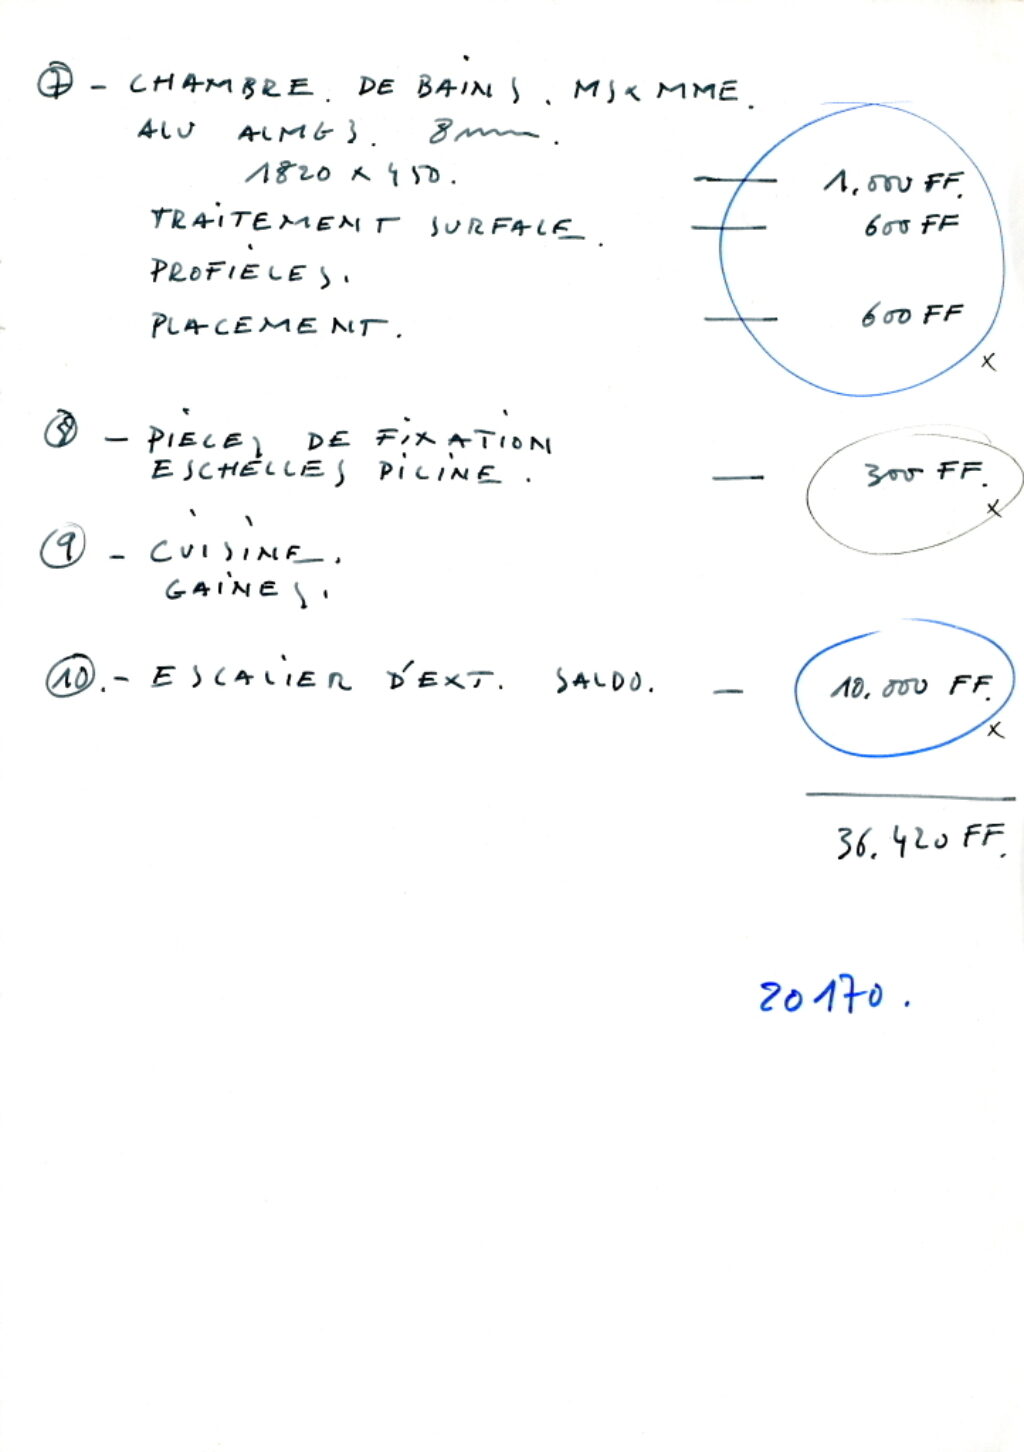 7 - CHAMBRE. DE BAINS. MS & MME.
ALU ALMG3. 8mm.
1820 x 450. — 1.000 FF.
TRAITEMENT SURFACE. — 600 FF
PROFIELES.
PLACEMENT. — 600 FF
x
8 - PIECES DE FIXATION
ESCHELLES PICINE. — 300 FF.
x
9 - CUISINE.
GAINES.
10.- ESCALIER D'EXT. SALDO. — 10.000 FF.
x
36.420 FF.
20170.